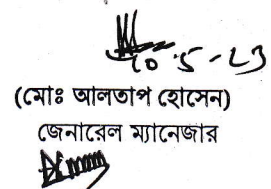 10-5-23
(মোঃ আলতাপ হোসেন)
জেনারেল ম্যানেজার